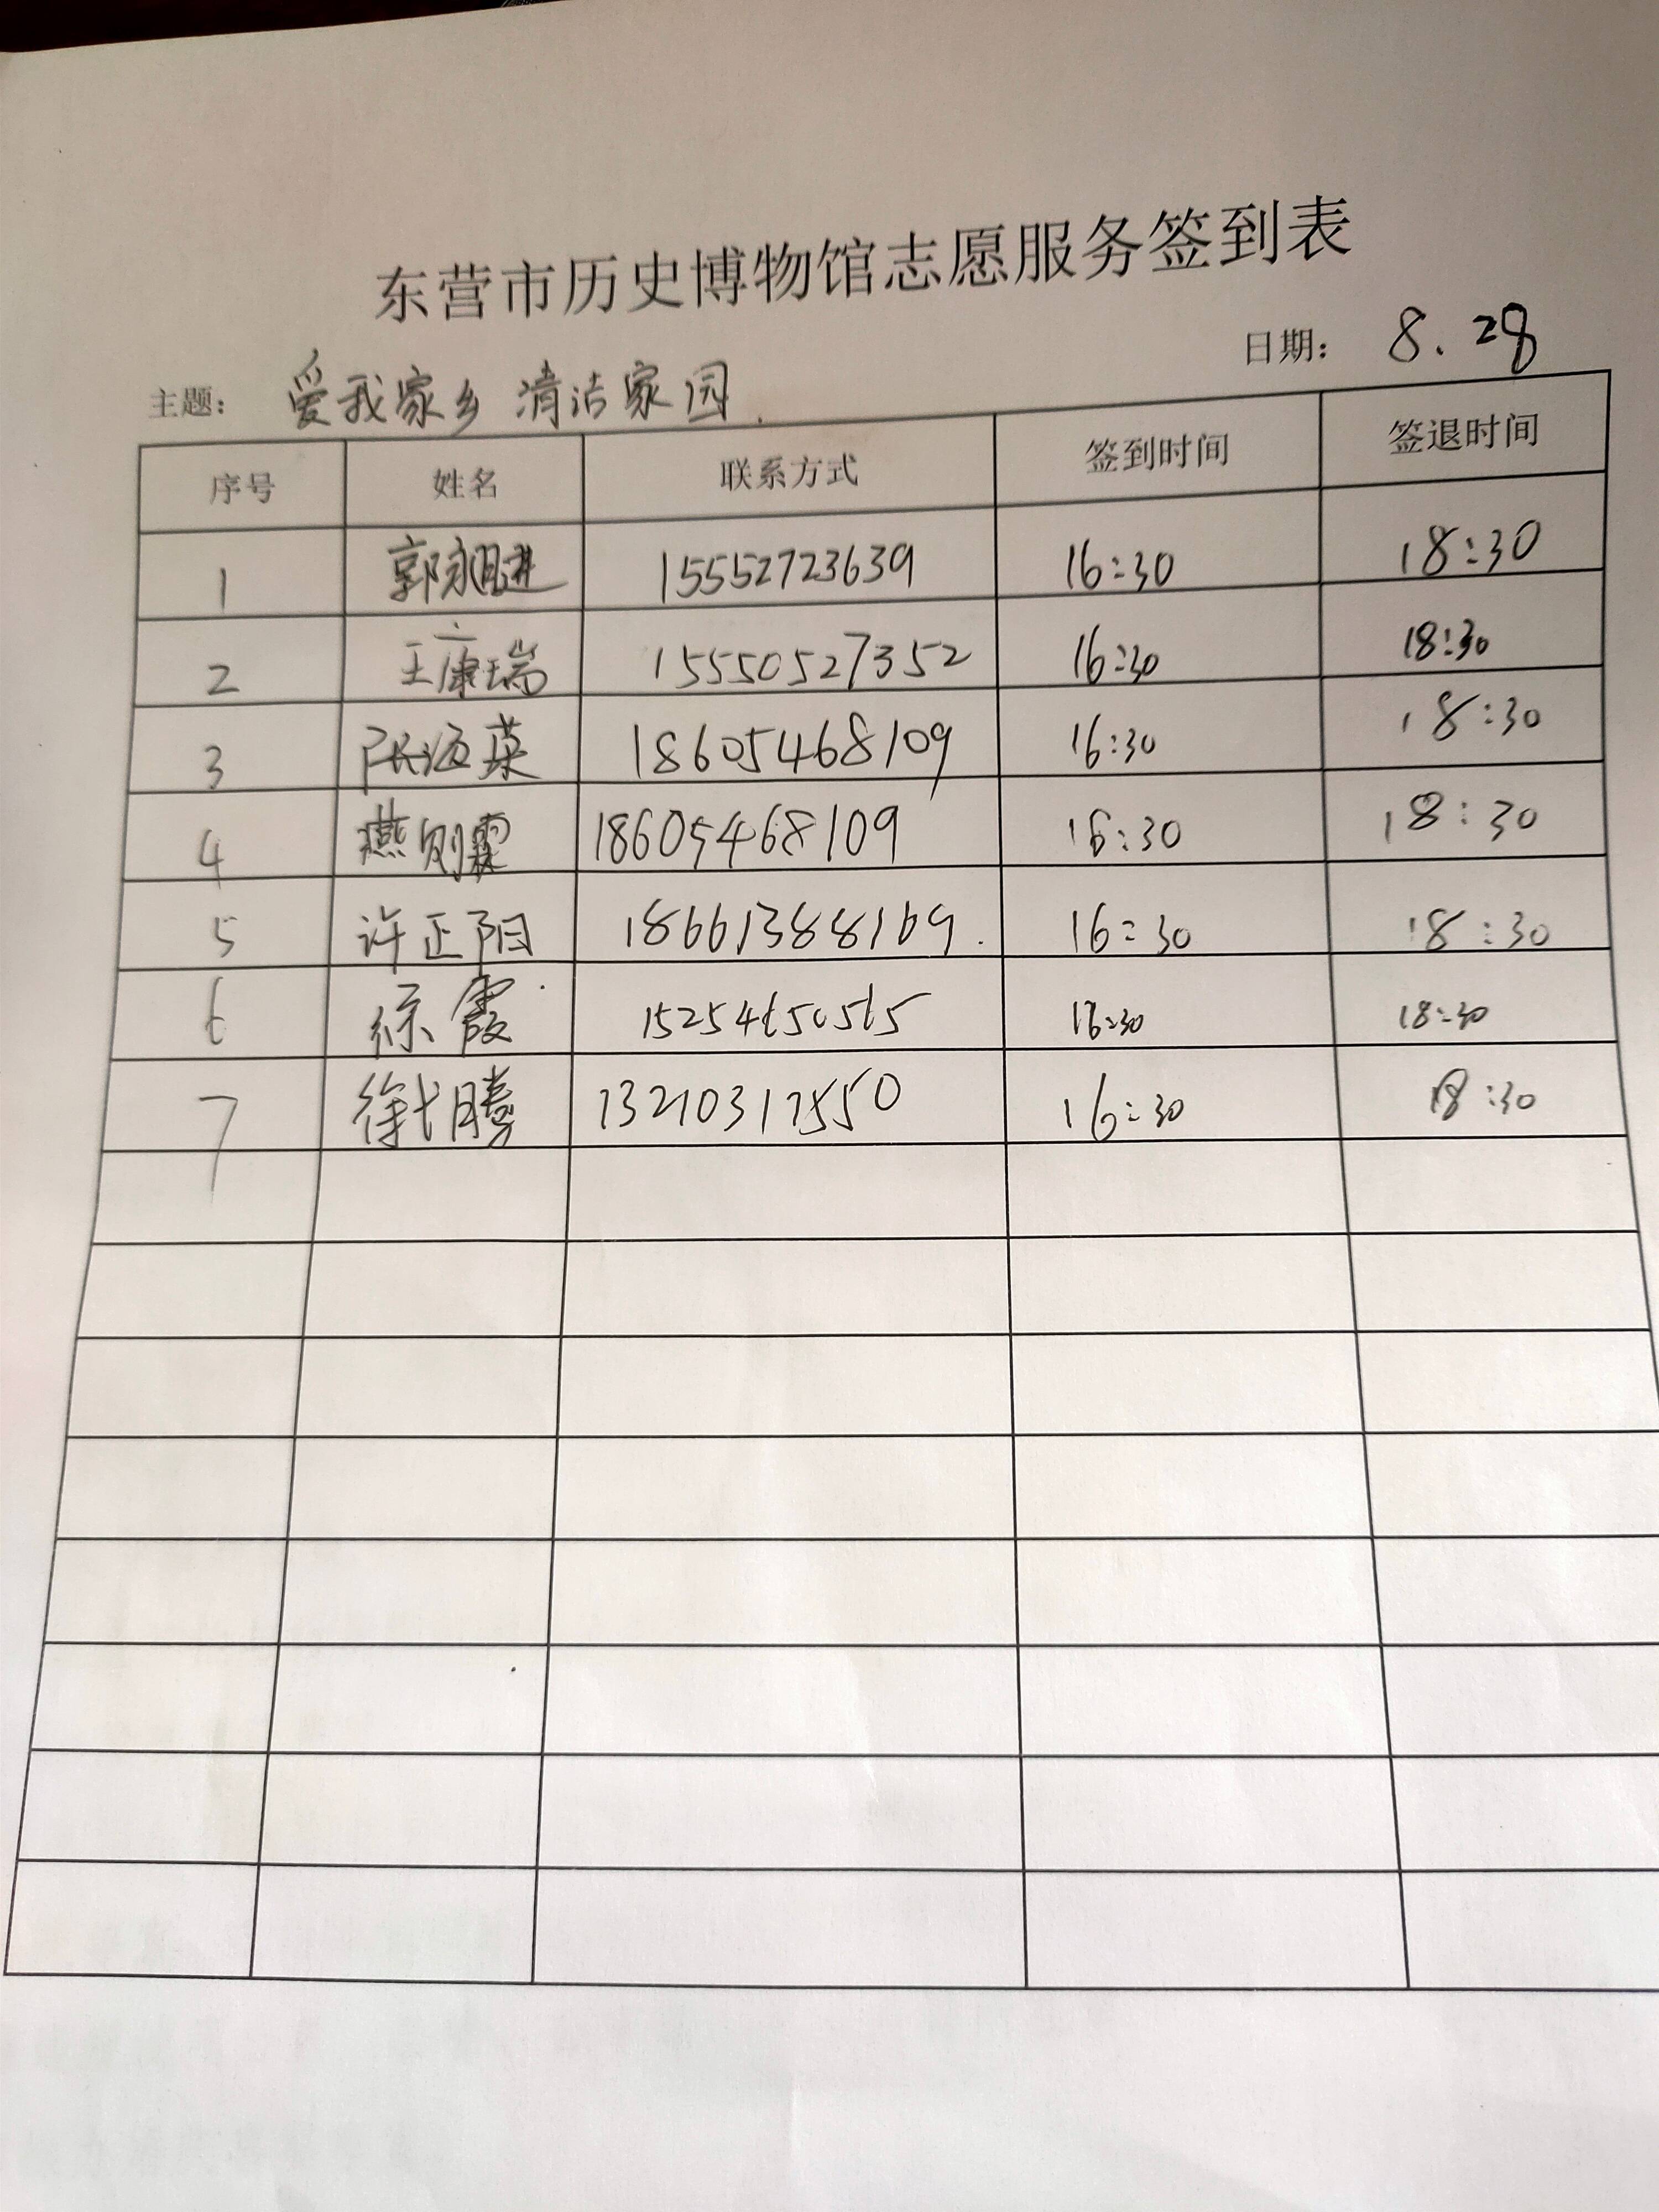 东营市历史博物馆志愿服务签到表
日期： 8.28
主题： 爱我家乡 清洁家园.
序号 姓名 联系方式 签到时间 签退时间
1 15552723639 16:30 18:30
2 王康瑞 15550527352 16:30 18:30
3 18605468109 16:30 18:30
4 18605468109 16:30 18:30
5 许正阳 18661388169. 16:30 18:30
6 徐霞 16:30 18:30
7 16:30 18:30